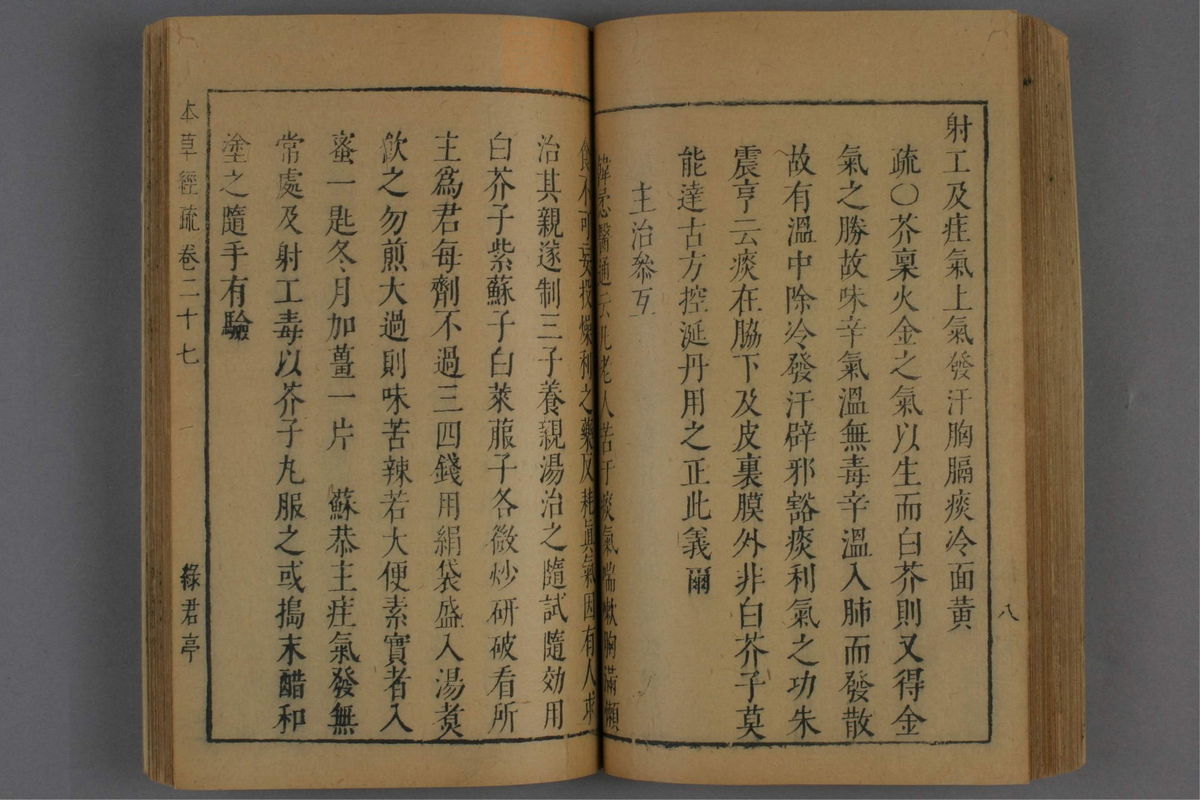 八
射工及疰氣上氣發汗胸膈痰冷面黄
疏〇芥稟火金之氣以生而白芥則又得金
氣之勝故味辛氣溫無毒辛溫入肺而發散
故有溫中除冷發汗辟邪豁痰利氣之功朱
震亨云痰在脇下及皮裏膜外非白芥子莫
能達古方控涎丹用之正此義爾
主治叅互
韓𢘅醫通云凡老人苦于痰氣喘嗽胸滿懶
食不可妄投燥利之藥反耗眞氣因有人求
治其親遂制三子養親湯治之隨試隨効用
白芥子紫蘇子白萊菔子各微炒研破看所
主爲君每劑不過三四錢用絹袋盛入湯煑
飲之勿煎大過則味苦辣若大便素實者入
蜜一匙冬月加薑一片　蘇恭主疰氣發無
常處及射工毒以芥子丸服之或搗末醋和
塗之隨手有驗
本草經疏 卷二十七
綠君亭